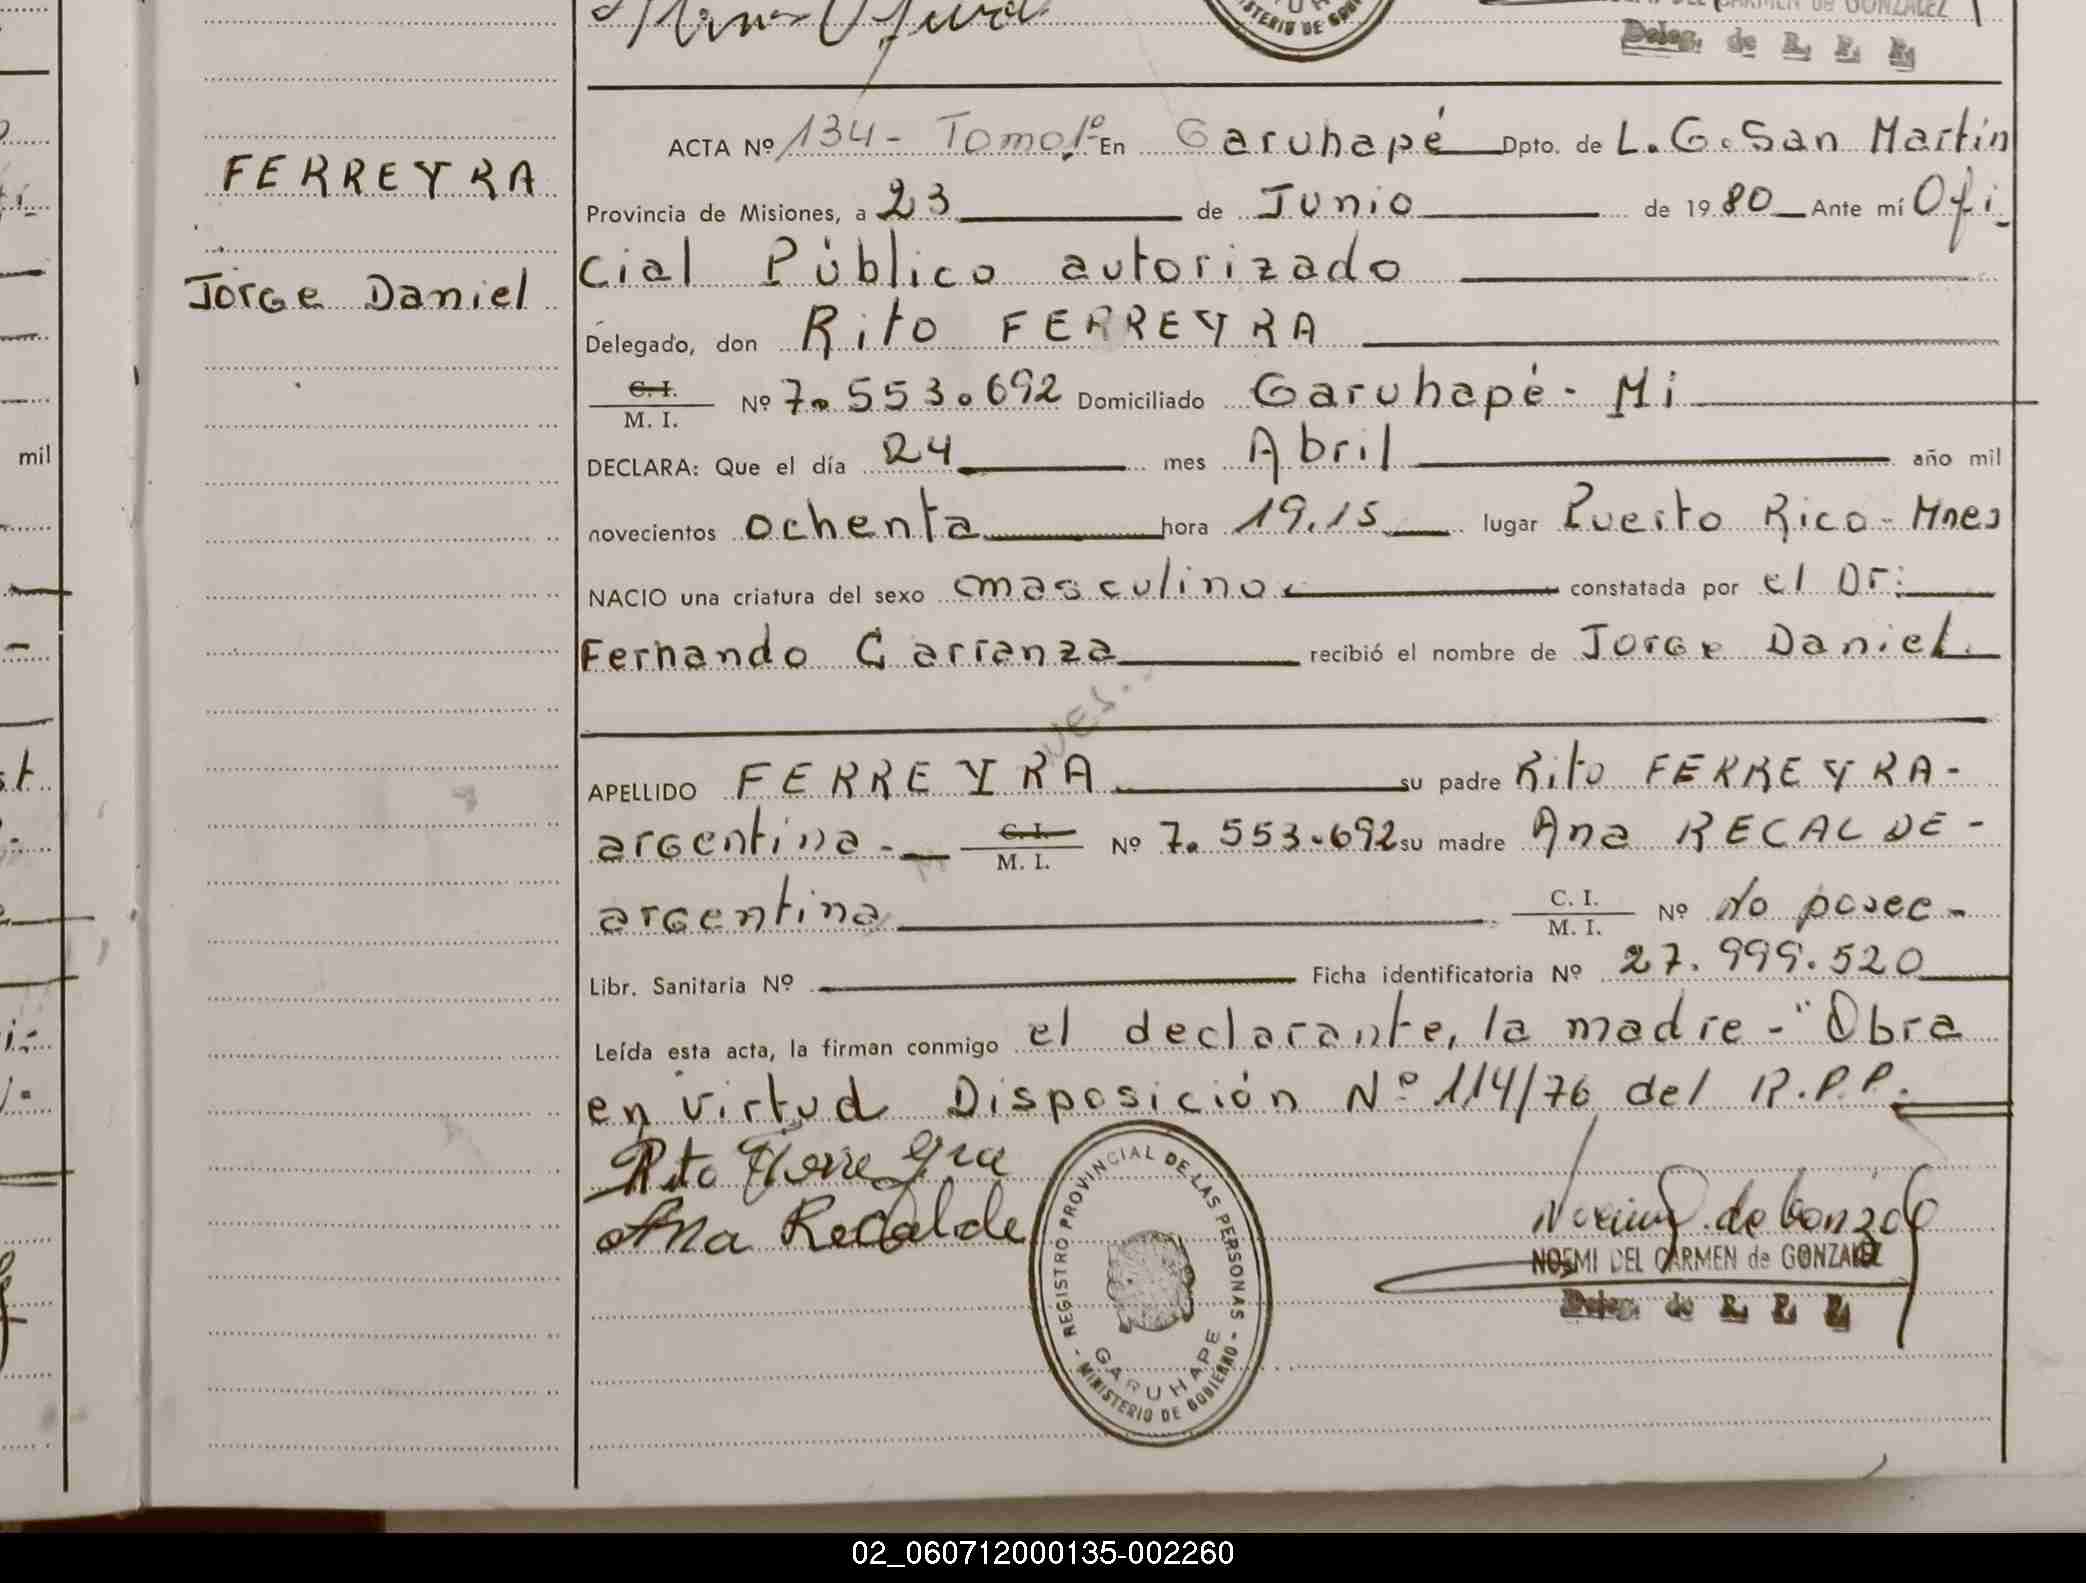 MINISTERIO DE GOB
DEL CARMEN de GONZALEZ
Deleg. de R. P. P.
ACTA Nº 134 - Tomo 1º En Garuhapé Dpto. de L. G. San Martín
FERREYRA
Provincia de Misiones, a 23 de Junio de 1980 Ante mí Ofi-
cial Público autorizado
Jorge Daniel
Delegado, don Rito FERREYRA
C. I.
M. I. Nº 7.553.692 Domiciliado Garuhapé - Mi
DECLARA: Que el día 24 mes Abril año mil
mil
novecientos ochenta hora 19.15 lugar Puerto Rico - Mnes
NACIO una criatura del sexo masculino constatada por el Dr:
Fernando Carranza recibió el nombre de Jorge Daniel.
APELLIDO FERREYRA su padre Rito FERREYRA-
argentina - C. I. M. I. Nº 7.553.692 su madre Ana RECALDE-
argentina C. I. M. I. Nº No posee-
Libr. Sanitaria Nº Ficha identificatoria Nº 27.999.520
Leída esta acta, la firman conmigo el declarante, la madre - "Obra
en virtud Disposición Nº 114/76 del R.P.P.
Rito Ferreyra
Ana Recalde
- REGISTRO PROVINCIAL DE LAS PERSONAS -
GARUHAPE
MINISTERIO DE GOBIERNO
de Gonzalez
NOEMI DEL CARMEN de GONZALEZ
Deleg. de R. P. P.
02_060712000135-002260